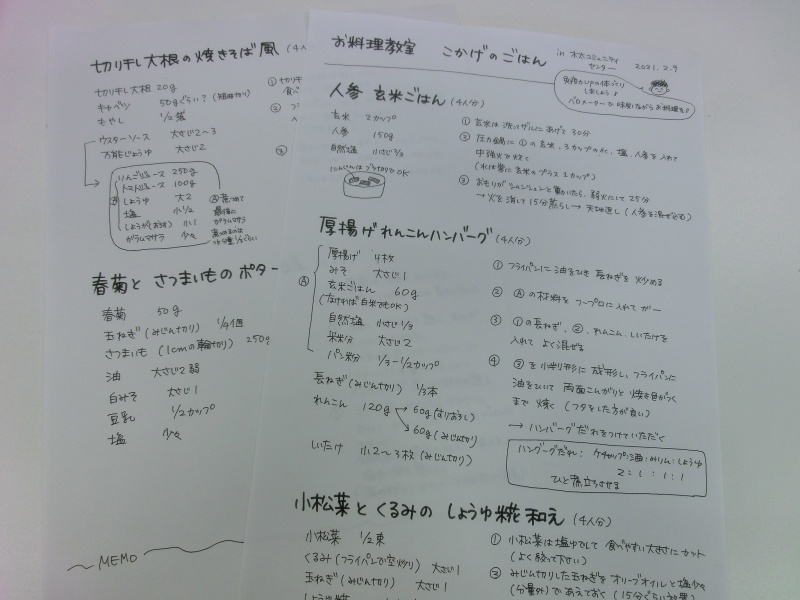 切り干し大根の焼きそば風 (4人
切り干し大根 20g
キャベツ 50gぐらい?(短冊切り)
もやし 1/2袋
ウスターソース 大さじ2〜3
万能じょうゆ 大さじ2
りんごジュース 250g
トマトジュース 100g
しょうゆ 大2
塩 小1/2
(しょうが(おろす) 小1
ガラムマサラ 少々
Ⓐ煮つめて
最後に
ガラムマサラ
① 切り干
食べ
②
③
春菊と さつまいものポター
春菊 50g
玉ねぎ(みじん切り) 1/4個
さつまいも (1cmの輪切り) 250g
油 大さじ2弱
白みそ 大さじ1
豆乳 1/2カップ
塩 少々
MEMO
お料理教室 こかげのごはん in 木太コミュニティ
センター 2021.2.9
免疫力UPの体づくり
しましょう♪
バロメーターで味見しながらお料理を♪
人参 玄米ごはん (4人分)
玄米 2カップ
人参 150g
自然塩 小さじ2/3
にんじんはブツ切りでOK
① 玄米は洗ってザルにあげて30分
② 圧力鍋に①の玄米、3カップの水、塩、人参を入れて
中強火で炊く
(水は常に玄米のプラス1カップ)
③ おもりがシュンシュンと動いたら、弱火にして25分
→火を消して15分蒸らし→天地返し(人参を混ぜる)
厚揚げれんこんハンバーグ (4人分)
Ⓐ
厚揚げ 4枚
みそ 大さじ1
玄米ごはん 60g
(なければ白米でもOK)
自然塩 小さじ1/3
米粉 大さじ2
パン粉 1/3−1/2カップ
長ねぎ(みじん切り) 1/3本
れんこん 120g → 60g(すりおろし)
60g(みじん切り)
しいたけ 小2〜3枚(みじん切り)
① フライパンに油をひき 長ねぎを炒める
② Ⓐの材料をフープロに入れてガー
③ ①の長ねぎ、②、れんこん、しいたけを
入れて よく混ぜる
④ ③を小判形に成形し、フライパンに
油をひいて 両面こんがりと焼き色がつく
まで焼く (フタをした方が良い)
→ ハンバーグだれをつけていただく
ハンバーグだれ: ケチャップ:酒:みりん:しょうゆ
2:1:1:1
ひと煮立ちさせる
小松菜とくるみの しょうゆ糀和え (4人分)
小松菜 1/2束
くるみ(フライパンで空炒り) 大さじ1
玉ねぎ(みじん切り) 大さじ1
① 小松菜は塩ゆでして 食べやすい大きさにカット
(よく絞って下さい)
② みじん切りした玉ねぎを オリーブオイルと塩少々
(分量外)であえておく (15分ぐらい放置)